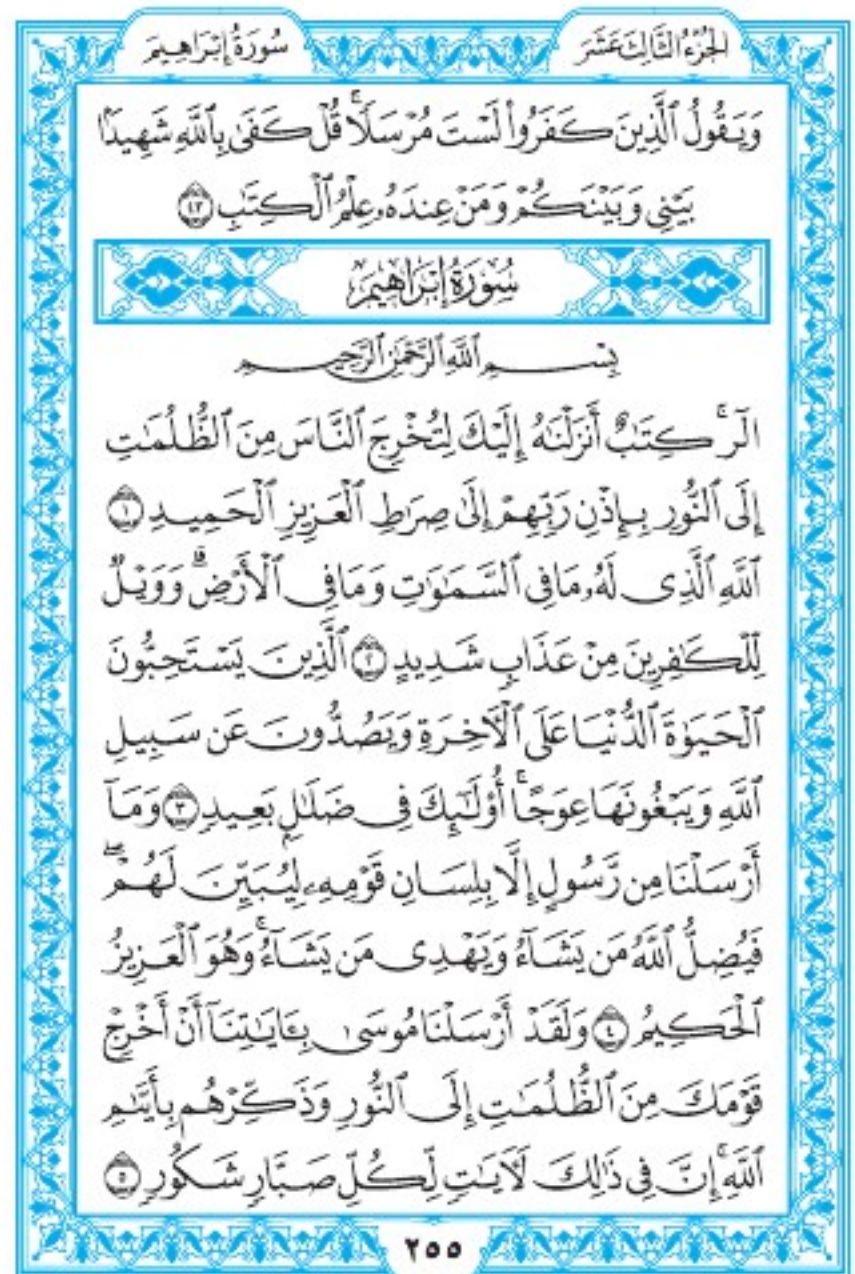 الجُزْءُ الثَّالِثَ عَشَرَ
سُورَةُ إِبْرَاهِيمَ
وَيَقُولُ ٱلَّذِينَ كَفَرُوا۟ لَسْتَ مُرْسَلًۭا ۚ قُلْ كَفَىٰ بِٱللَّهِ شَهِيدًۢا
بَيْنِى وَبَيْنَكُمْ وَمَنْ عِندَهُۥ عِلْمُ ٱلْكِتَٰبِ ٤٣
سُورَةُ إِبْرَاهِيمَ
بِسْمِ ٱللَّهِ ٱلرَّحْمَٰنِ ٱلرَّحِيمِ
الٓر ۚ كِتَٰبٌ أَنزَلْنَٰهُ إِلَيْكَ لِتُخْرِجَ ٱلنَّاسَ مِنَ ٱلظُّلُمَٰتِ
إِلَى ٱلنُّورِ بِإِذْنِ رَبِّهِمْ إِلَىٰ صِرَٰطِ ٱلْعَزِيزِ ٱلْحَمِيدِ ١
ٱللَّهِ ٱلَّذِى لَهُۥ مَا فِى ٱلسَّمَٰوَٰتِ وَمَا فِى ٱلْأَرْضِ ۗ وَوَيْلٌۭ
لِّلْكَٰفِرِينَ مِنْ عَذَابٍۢ شَدِيدٍ ٢ ٱلَّذِينَ يَسْتَحِبُّونَ
ٱلْحَيَوٰةَ ٱلدُّنْيَا عَلَى ٱلْءَاخِرَةِ وَيَصُدُّونَ عَن سَبِيلِ
ٱللَّهِ وَيَبْغُونَهَا عِوَجًا ۚ أُو۟لَٰٓئِكَ فِى ضَلَٰلٍۭ بَعِيدٍۢ ٣ وَمَآ
أَرْسَلْنَا مِن رَّسُولٍ إِلَّا بِلِسَانِ قَوْمِهِۦ لِيُبَيِّنَ لَهُمْ ۖ
فَيُضِلُّ ٱللَّهُ مَن يَشَآءُ وَيَهْدِى مَن يَشَآءُ ۚ وَهُوَ ٱلْعَزِيزُ
ٱلْحَكِيمُ ٤ وَلَقَدْ أَرْسَلْنَا مُوسَىٰ بِـَٔايَٰتِنَآ أَنْ أَخْرِجْ
قَوْمَكَ مِنَ ٱلظُّلُمَٰتِ إِلَى ٱلنُّورِ وَذَكِّرْهُم بِأَيَّىٰمِ
ٱللَّهِ ۚ إِنَّ فِى ذَٰلِكَ لَءَايَٰتٍۢ لِّكُلِّ صَبَّارٍۢ شَكُورٍۢ ٥
٢٥٥